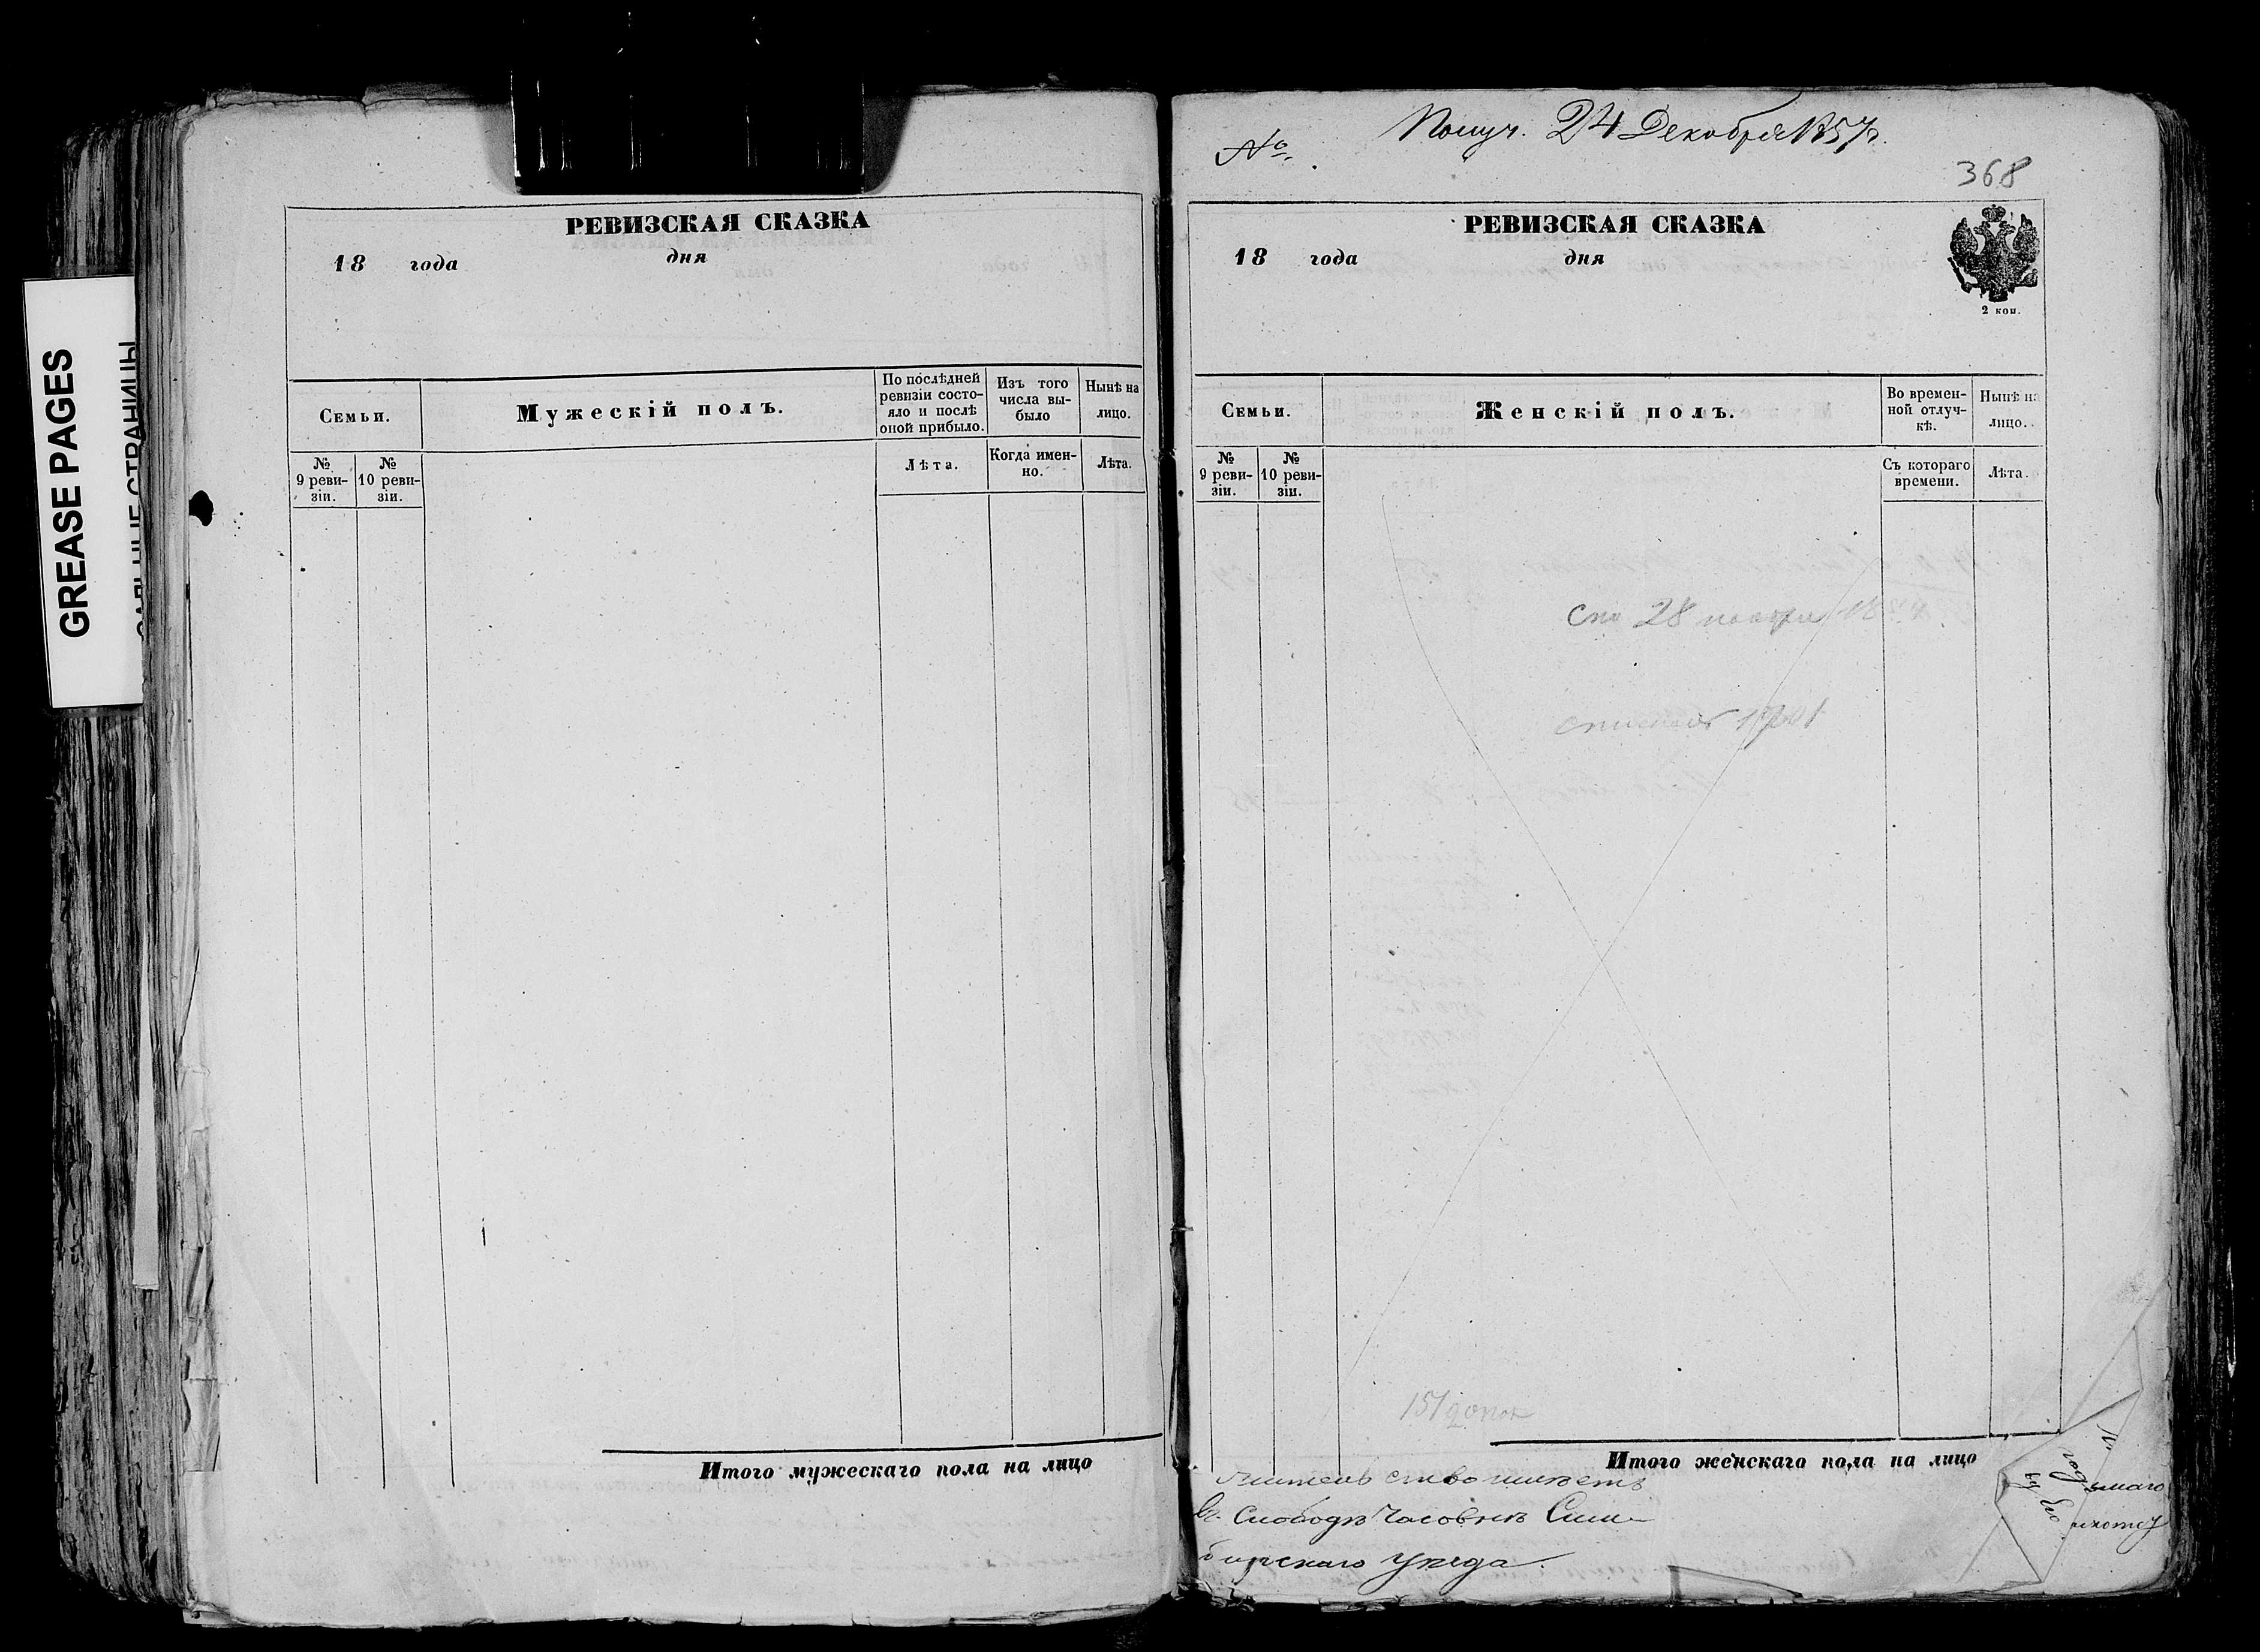 GREASE PAGES
РЕВИЗСКАЯ СКАЗКА
18 года дня
Семьи.
Мужескій полъ.
По послѣдней ревизіи состо-
яло и послѣ
оной прибыло.
Изъ того
числа вы-
было
Нынѣ на
лицо.
№
9 реви-
зіи.
№
10 реви-
зіи.
Лѣта.
Когда имен-
но.
Лѣта.
Итого мужескаго пола на лицо
№.
Получ. 24 Декабря 1857 г.
368
РЕВИЗСКАЯ СКАЗКА
18 года дня
2 коп.
Семьи.
Женскій полъ.
Во времен-
ной отлуч-
кѣ.
Нынѣ на
лицо.
№
9 реви-
зіи.
№
10 реви-
зіи.
Съ котораго
времени.
Лѣта.
28 ноября
151
Итого женскаго пола на лицо
жительство имѣетъ
въ Слободѣ Часовнѣ Сим-
бирскаго уѣзда.